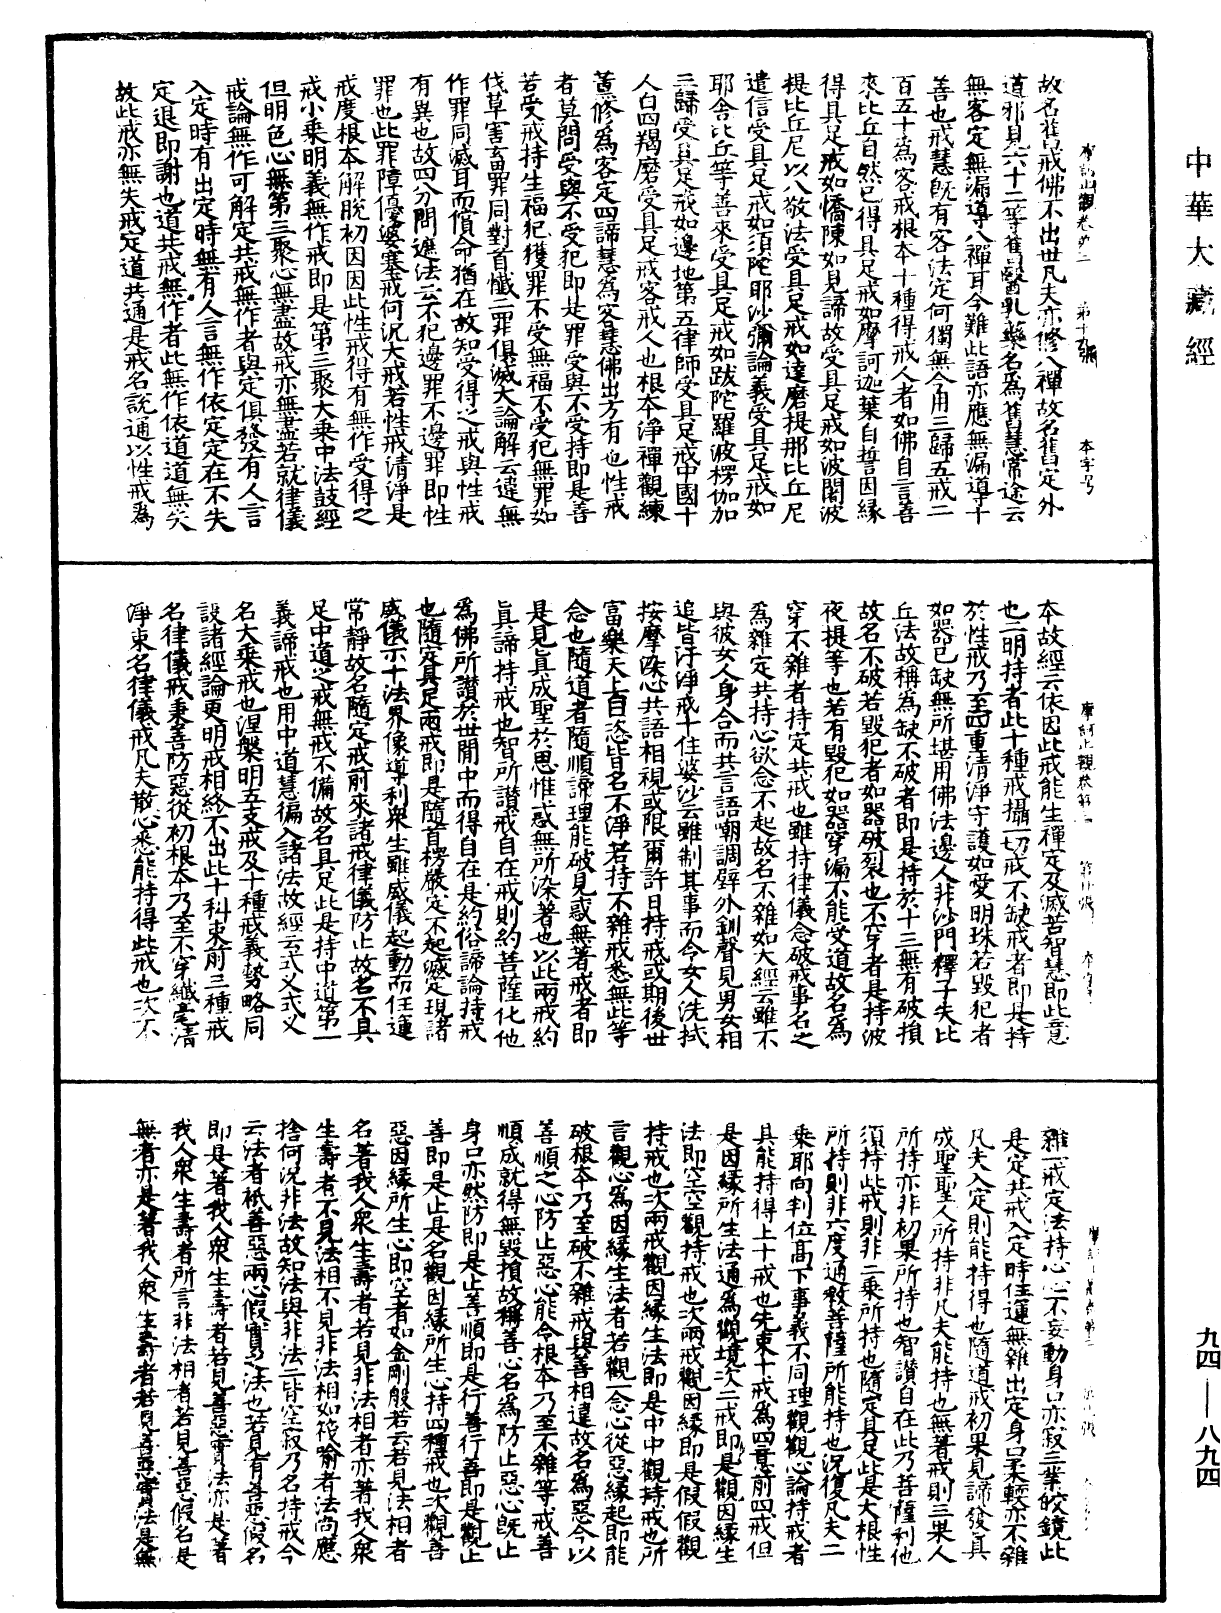 中華大藏經
摩訶止觀卷第二 第十九張 本字号
故名舊戒佛不出世凡夫亦修八禪故名舊定外
道邪見六十二等舊醫乳藥名為舊慧常途云
無客定無漏導八禪耳今難此語亦應無漏導十
善也戒慧既有客法定何獨無今用三歸五戒二
百五十為客戒根本十種得戒人者如佛自言善
來比丘自然已得具足戒如摩訶迦葉自誓因緣
得具足戒如憍陳如見諦故受具足戒如波闍波
提比丘尼以八敬法受具足戒如達磨提那比丘尼
遣信受具足戒如須陀耶沙彌論義受具足戒如
耶舍比丘等善來受具足戒如跋陀羅波楞伽加
三歸受具足戒如邊地第五律師受具足戒中國十
人白四羯磨受具足戒客戒人也根本淨禪觀練
薰修為客定四諦慧為客慧佛出方有也性戒
者莫問受與不受犯即是罪受與不受持即是善
若受戒持生福犯獲罪不受無福不受犯無罪如
伐草害畜罪同對首懺二罪俱滅大論解云違無
作罪同滅耳而償命猶在故知受得之戒與性戒
有異也故四分問遮法云不犯邊罪不邊罪即性
罪也此罪障優婆塞戒何況大戒若性戒清淨是
戒度根本解脫初因因此性戒得有無作受得之
戒小乘明義無作戒即是第三聚大乘中法鼓經
但明色心無第三聚心無盡故戒亦無盡若就律儀
戒論無作可解定共戒無作者與定俱發有人言
入定時有出定時無有人言無作依定定在不失
定退即謝也道共戒無作者此無作依道道無失
故此戒亦無失戒定道共通是戒名說通以性戒為
摩訶止觀卷第二
本故經云依因此戒能生禪定及滅苦智慧即此意
也二明持者此十種戒攝一切戒不缺戒者即是持
於性戒乃至四重清淨守護如愛明珠若毀犯者
如器已缺無所堪用佛法邊人非沙門釋子失比
丘法故稱為缺不破者即是持於十三無有破損
故名不破若毀犯者如器破裂也不穿者是持波
夜提等也若有毀犯如器穿漏不能受道故名為
穿不雜者持定共戒也雖持律儀念破戒事名之
為雜定共持心欲念不起故名不雜如大經云雖不
與彼女人身合而共言語嘲調壁外釧聲見男女相
追皆汙淨戒十住婆沙云雖制其事而令女人洗拭
按摩染心共語相視或限爾許日持戒或期後世
富樂天上自恣皆名不淨若持不雜戒悉無此等
念也隨道者隨順諦理能破見惑無著戒者即
是見真成聖於思惟惑無所染著也以此兩戒約
真諦持戒也智所讚戒自在戒則約菩薩化他
為佛所讚於世間中而得自在是約俗諦論持戒
也隨定具足兩戒即是隨首楞嚴定不起滅定現諸
威儀示十法界像導利眾生雖威儀起動而任運
常靜故名隨定戒前來諸戒律儀防止故名不具
足中道之戒無戒不備故名具足此是持中道第一
義諦戒也用中道慧徧入諸法故經云式叉式叉
名大乘戒也涅槃明五支戒及十種戒義勢略同
設諸經論更明戒相終不出此十科束前三種戒
名律儀戒秉善防惡從初根本乃至不穿纖毫清
淨束名律儀戒凡夫散心悉能持得此戒也次不
雜一戒定法持心心不妄動身口亦寂三業皎鏡此
是定共戒入定時任運無雜出定身口柔輭亦不雜
凡夫入定則能持得也隨道戒初果見諦發真
成聖聖人所持非凡夫能持也無著戒則三果人
所持亦非初果所持也智讚自在此乃菩薩利他
須持此戒則非二乘所持也隨定具足此是大根性
所持則非六度通教菩薩所能持也況復凡夫二
乘耶向判位高下事義不同理觀觀心論持戒者
具能持得上十戒也先束十戒為四意前四戒但
是因緣所生法通為觀境次二戒即是觀因緣生
法即空空觀持戒也次兩戒觀因緣即是假假觀
持戒也次兩戒觀因緣生法即是中中觀持戒也所
言觀心為因緣生法者若觀一念心從惡緣起即能
破根本乃至破不雜戒與善相違故名為惡今以
善順之心防止惡心能令根本乃至不雜等戒善
順成就得無毀損故稱善心名為防止惡心既止
身口亦然防即是止善順即是行善行善即是觀止
善即是止是名觀因緣所生心持四種戒也次觀善
惡因緣所生心即空者如金剛般若云若見法相者
名著我人眾生壽者若見非法相者亦著我人眾
生壽者不見法相不見非法相如筏喻者法尚應
捨何況非法故知法與非法二皆空寂乃名持戒今
云法者秖善惡兩心假實之法也若見有善惡假名
即是著我人眾生壽者若見善惡實法亦是著
我人眾生壽者所言非法相者若見善惡假名是
無者亦是著我人眾生壽者若見善惡實法是無
九四——八九四